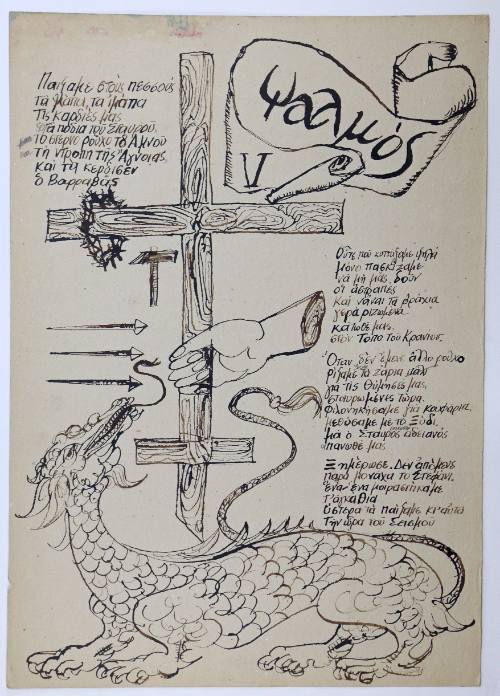 Ψαλμός
V
Παίξαμε στούς πεσσούς
τα μάτια, τα ιμάτια
Τις καρδιές μας
στα πόδια του Σταυρού.
Το στερνό ρούχο το Αμνού
τη ντροπή της Άγνοιας
και τα κέρδισεν
ό Βαρραβάς
Ούτε πού κυττάξαμε ψηλά
μόνο πασκίζαμε
να μή μάς δούν
οι αστραπές
και νάναι τα βράχια
γερά ριζωμένα
κάτωθέ μας
στον Τόπο του Κρανίου.
Όταν δεν έμεινε άλλο ρούχο
ρίξαμε τα ζάρια πάλι
για τις θύμησές μας,
σταυρωμένες τώρα.
Φιλονικήσαμε για κουφάρια,
μεθύσαμε με το Ξύδι,
μα ό Σταυρός άδειανός
πάνωθέ μας
Ξημέρωσε. Δεν απέμεινε
παρά μοναχα το Στεφάνι.
ένα-ένα μοιραστήκαμε
τ' αγκάθια
ύστερα τα παίξαμε κι' αυτά
Την ώρα του Σεισμού